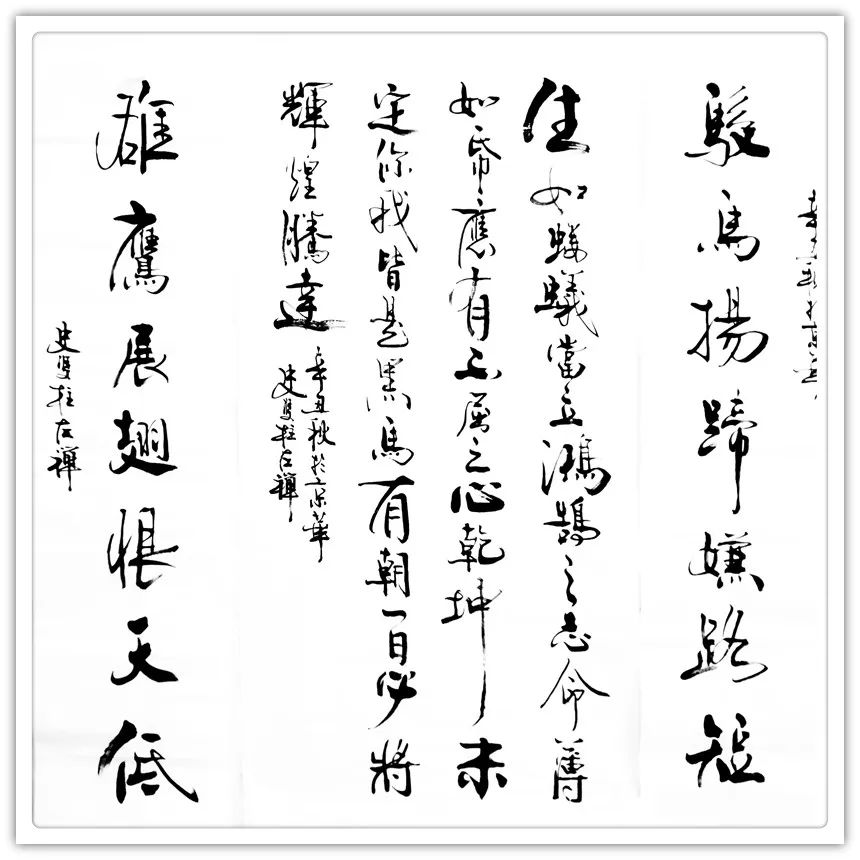 辛丑秋於京華
駿馬揚蹄嫌路短
生如螻蟻當立鴻鵠之志命薄
如帋應有不屈之心乾坤未
定你我皆是黑馬有朝一日必將
輝煌騰達
辛丑秋於京華
史雙柱左禪
雄鷹展翅恨天低
史雙柱左禪